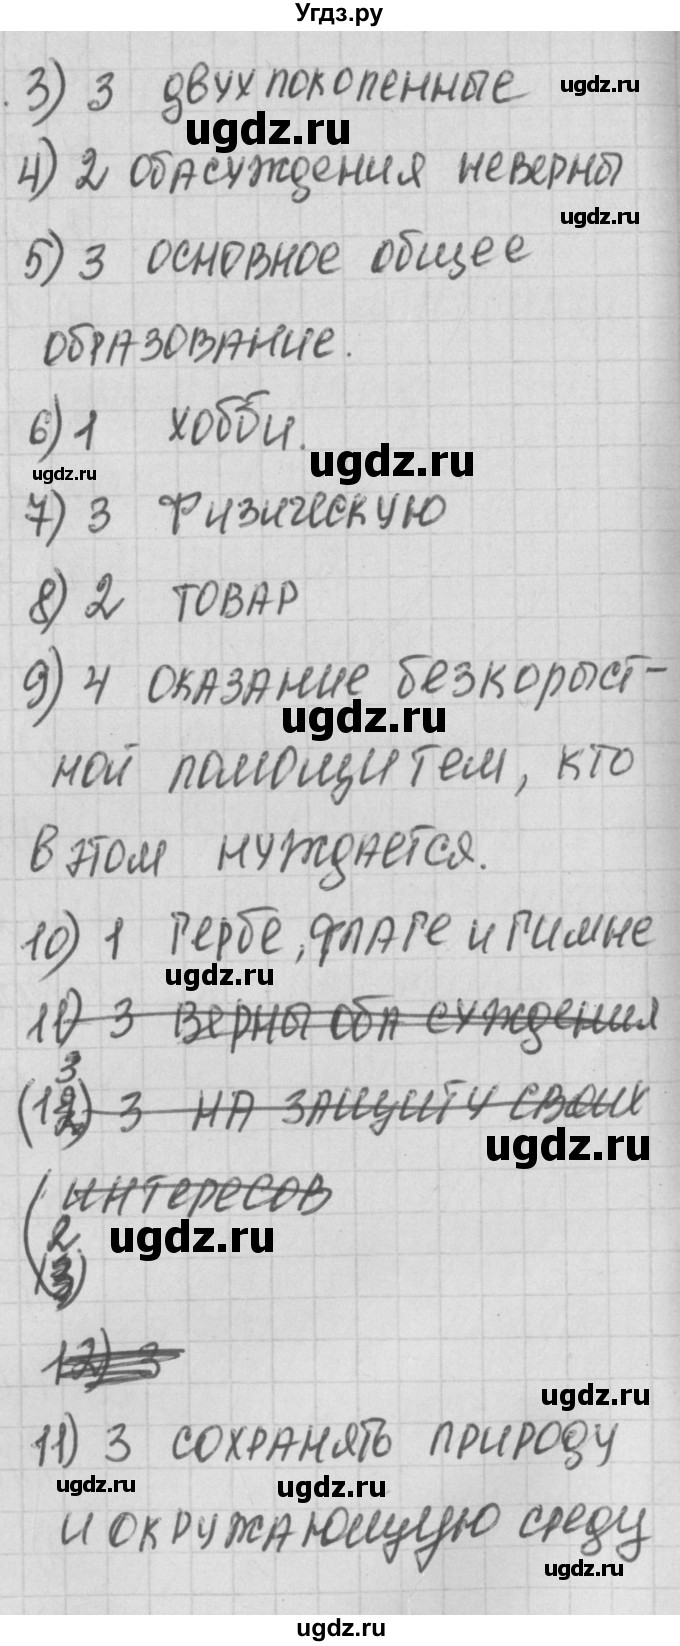 Угдз.ру
3) 3 двухпокопенные
ugdz.ru
ugdz.ru
4) 2 оба суждения неверны
ugdz.ru
5) 3 основное общее
образование.
6) 1 хобби.
ugdz.ru
ugdz.ru
7) 3 физическую
8) 2 товар
9) 4 оказание безкорыст-
ugdz.ru
ной помощи тем, кто
в этом нуждается.
10) 1 гербе, флаге и гимне
ugdz.ru
11) 3 верны оба суждения
3
(12) 3 на защиту своих
ugdz.ru
интересов
2
ugdz.ru
12) 3
ugdz.ru
11) 3 сохранять природу
ugdz.ru
ugdz.ru
и окружающую среду
ugdz.ru
ugdz.ru